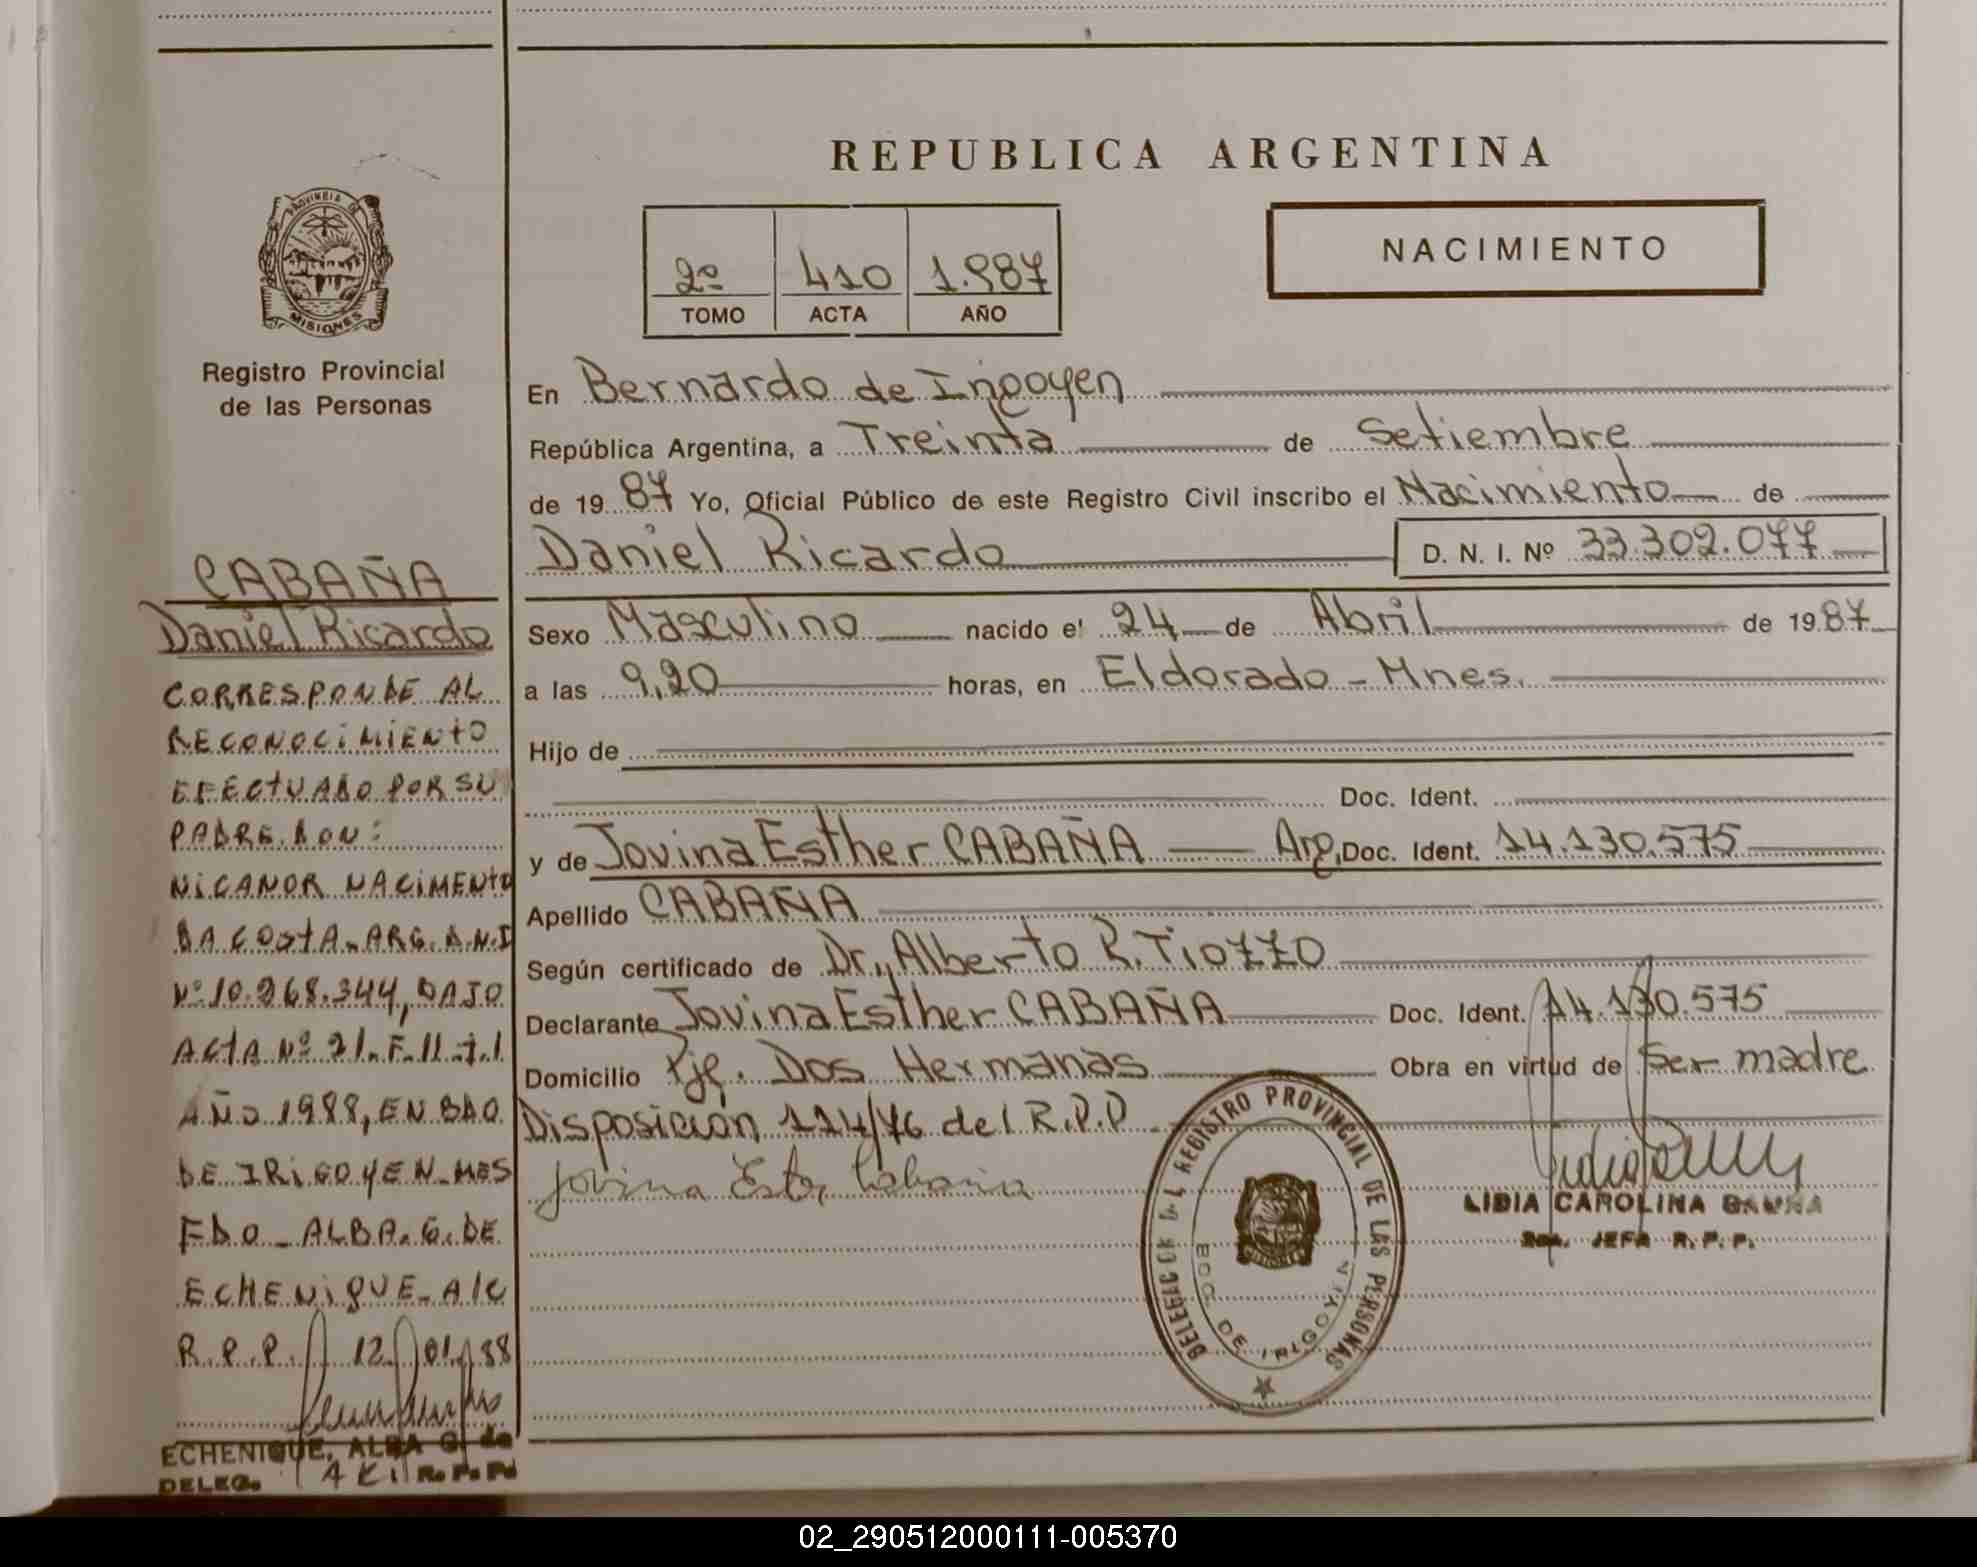 PROVINCIA DE
MISIONES
Registro Provincial
de las Personas
CABAÑA
Daniel Ricardo
CORRESPONDE AL
RECONOCIMIENTO
EFECTUADO POR SU
PADRE. DON:
NICANOR NACIMENTO
DA COSTA. ARG. D.N.I
Nº 10.268.344, BAJO
ACTA Nº 21. F. 11 T. 1
AÑO 1988, EN BDO
DE IRIGOYEN - MES
FDO - ALBA. G. DE
ECHENIQUE - A/C
R.P.P. 12 01 88
ECHENIQUE, ALBA G. de
DELEG. R. P. P.
REPUBLICA ARGENTINA
2º 410 1.987
TOMO ACTA AÑO
NACIMIENTO
En Bernardo de Irigoyen
República Argentina, a Treinta de Setiembre
de 19 87 Yo, Oficial Público de este Registro Civil inscribo el Nacimiento de
Daniel Ricardo D. N. I. Nº 33.302.077
Sexo Masculino nacido el 24 de Abril de 19 87
a las 9,20 horas, en Eldorado - Mnes.
Hijo de
Doc. Ident.
y de Jovina Esther CABAÑA Arg. Doc. Ident. 14.130.575
Apellido CABAÑA
Según certificado de Dr. Alberto R. Tiozzo
Declarante Jovina Esther CABAÑA Doc. Ident. 14.130.575
Domicilio Pje. Dos Hermanas Obra en virtud de Ser madre
Disposición 114/76 del R.P.P
Jovina Est, Cabaña
REGISTRO PROVINCIAL DE LAS PERSONAS
BDO. DE IRIGOYEN
MISIONES
LIDIA CAROLINA
JEFA R. P. P.
02_290512000111-005370